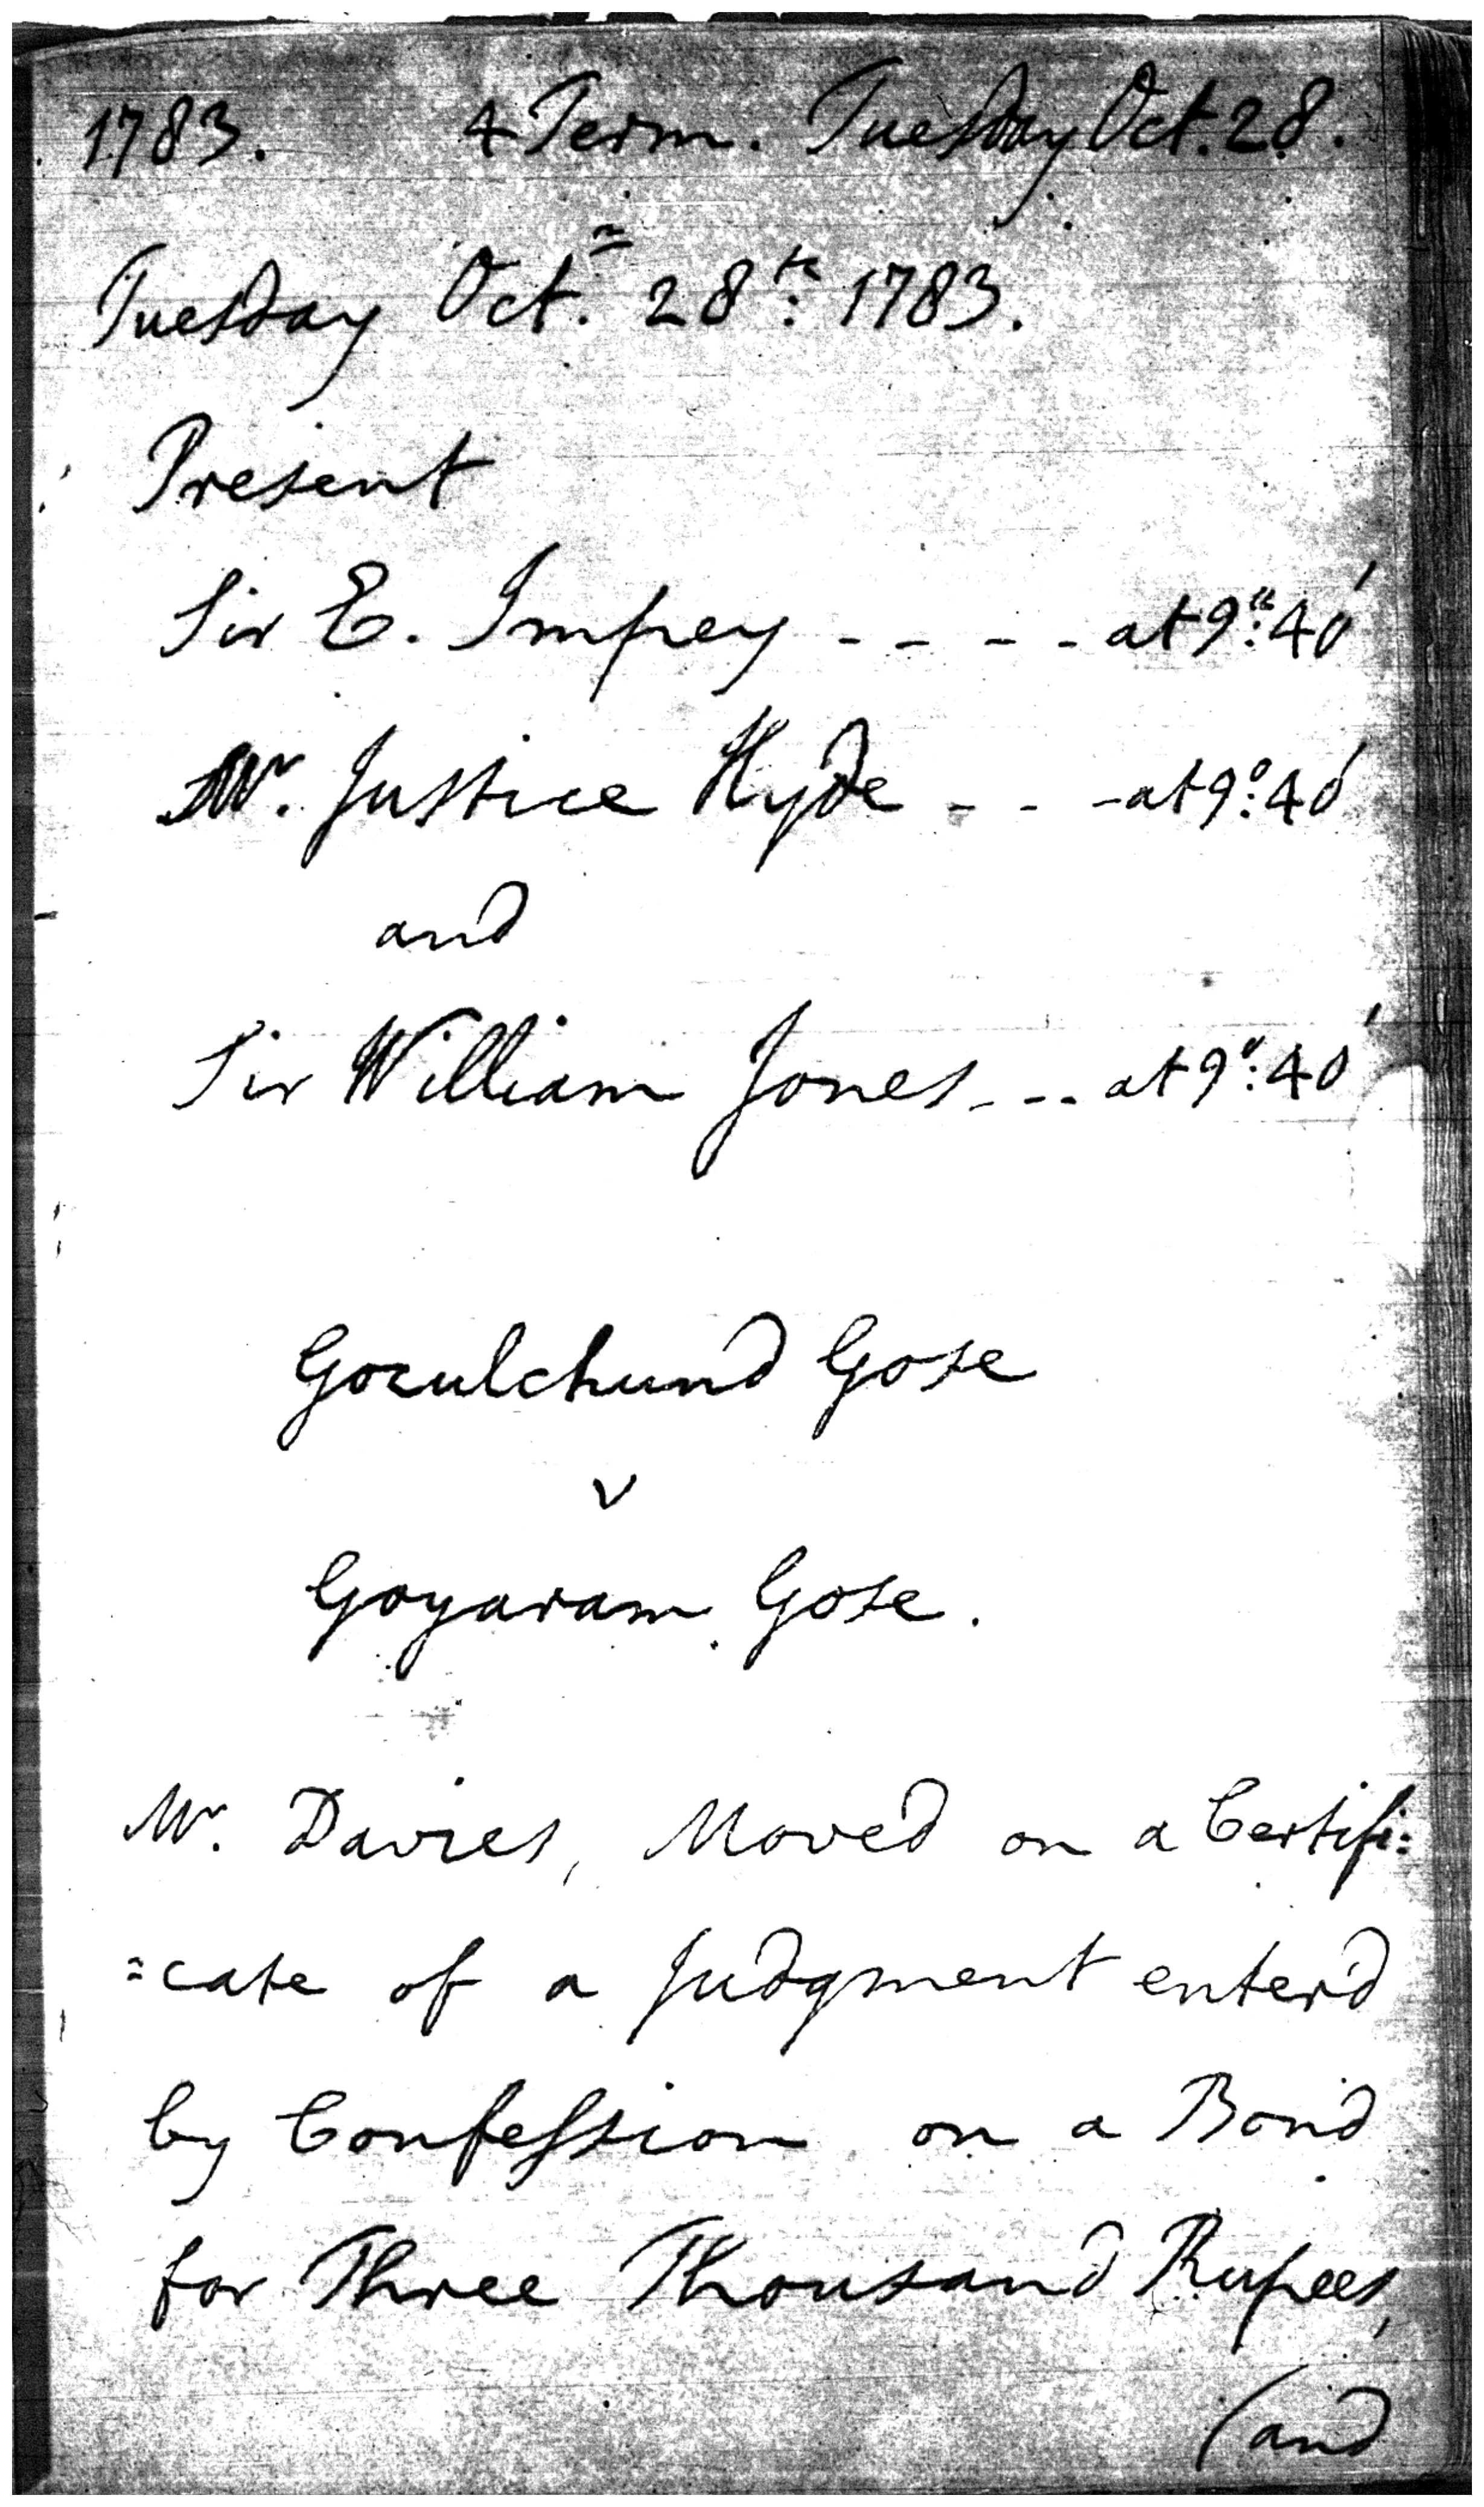 1783. 4 Term. Tuesday Oct. 28.
Tuesday Oct.r 28th: 1783.
Present
Sir E. Impey - - - - at 9h: 40'
Mr. Justice Hyde - - - at 9o: 40'
and
Sir William Jones - - - at 9o: 40'
Goculchund Gose
v
Goyaram Gose.
Mr. Davies, Moved on a Certifi:
=cate of a Judgment enter'd
by Confeſsion on a Bond
for Three Thousand Rupees,
(and